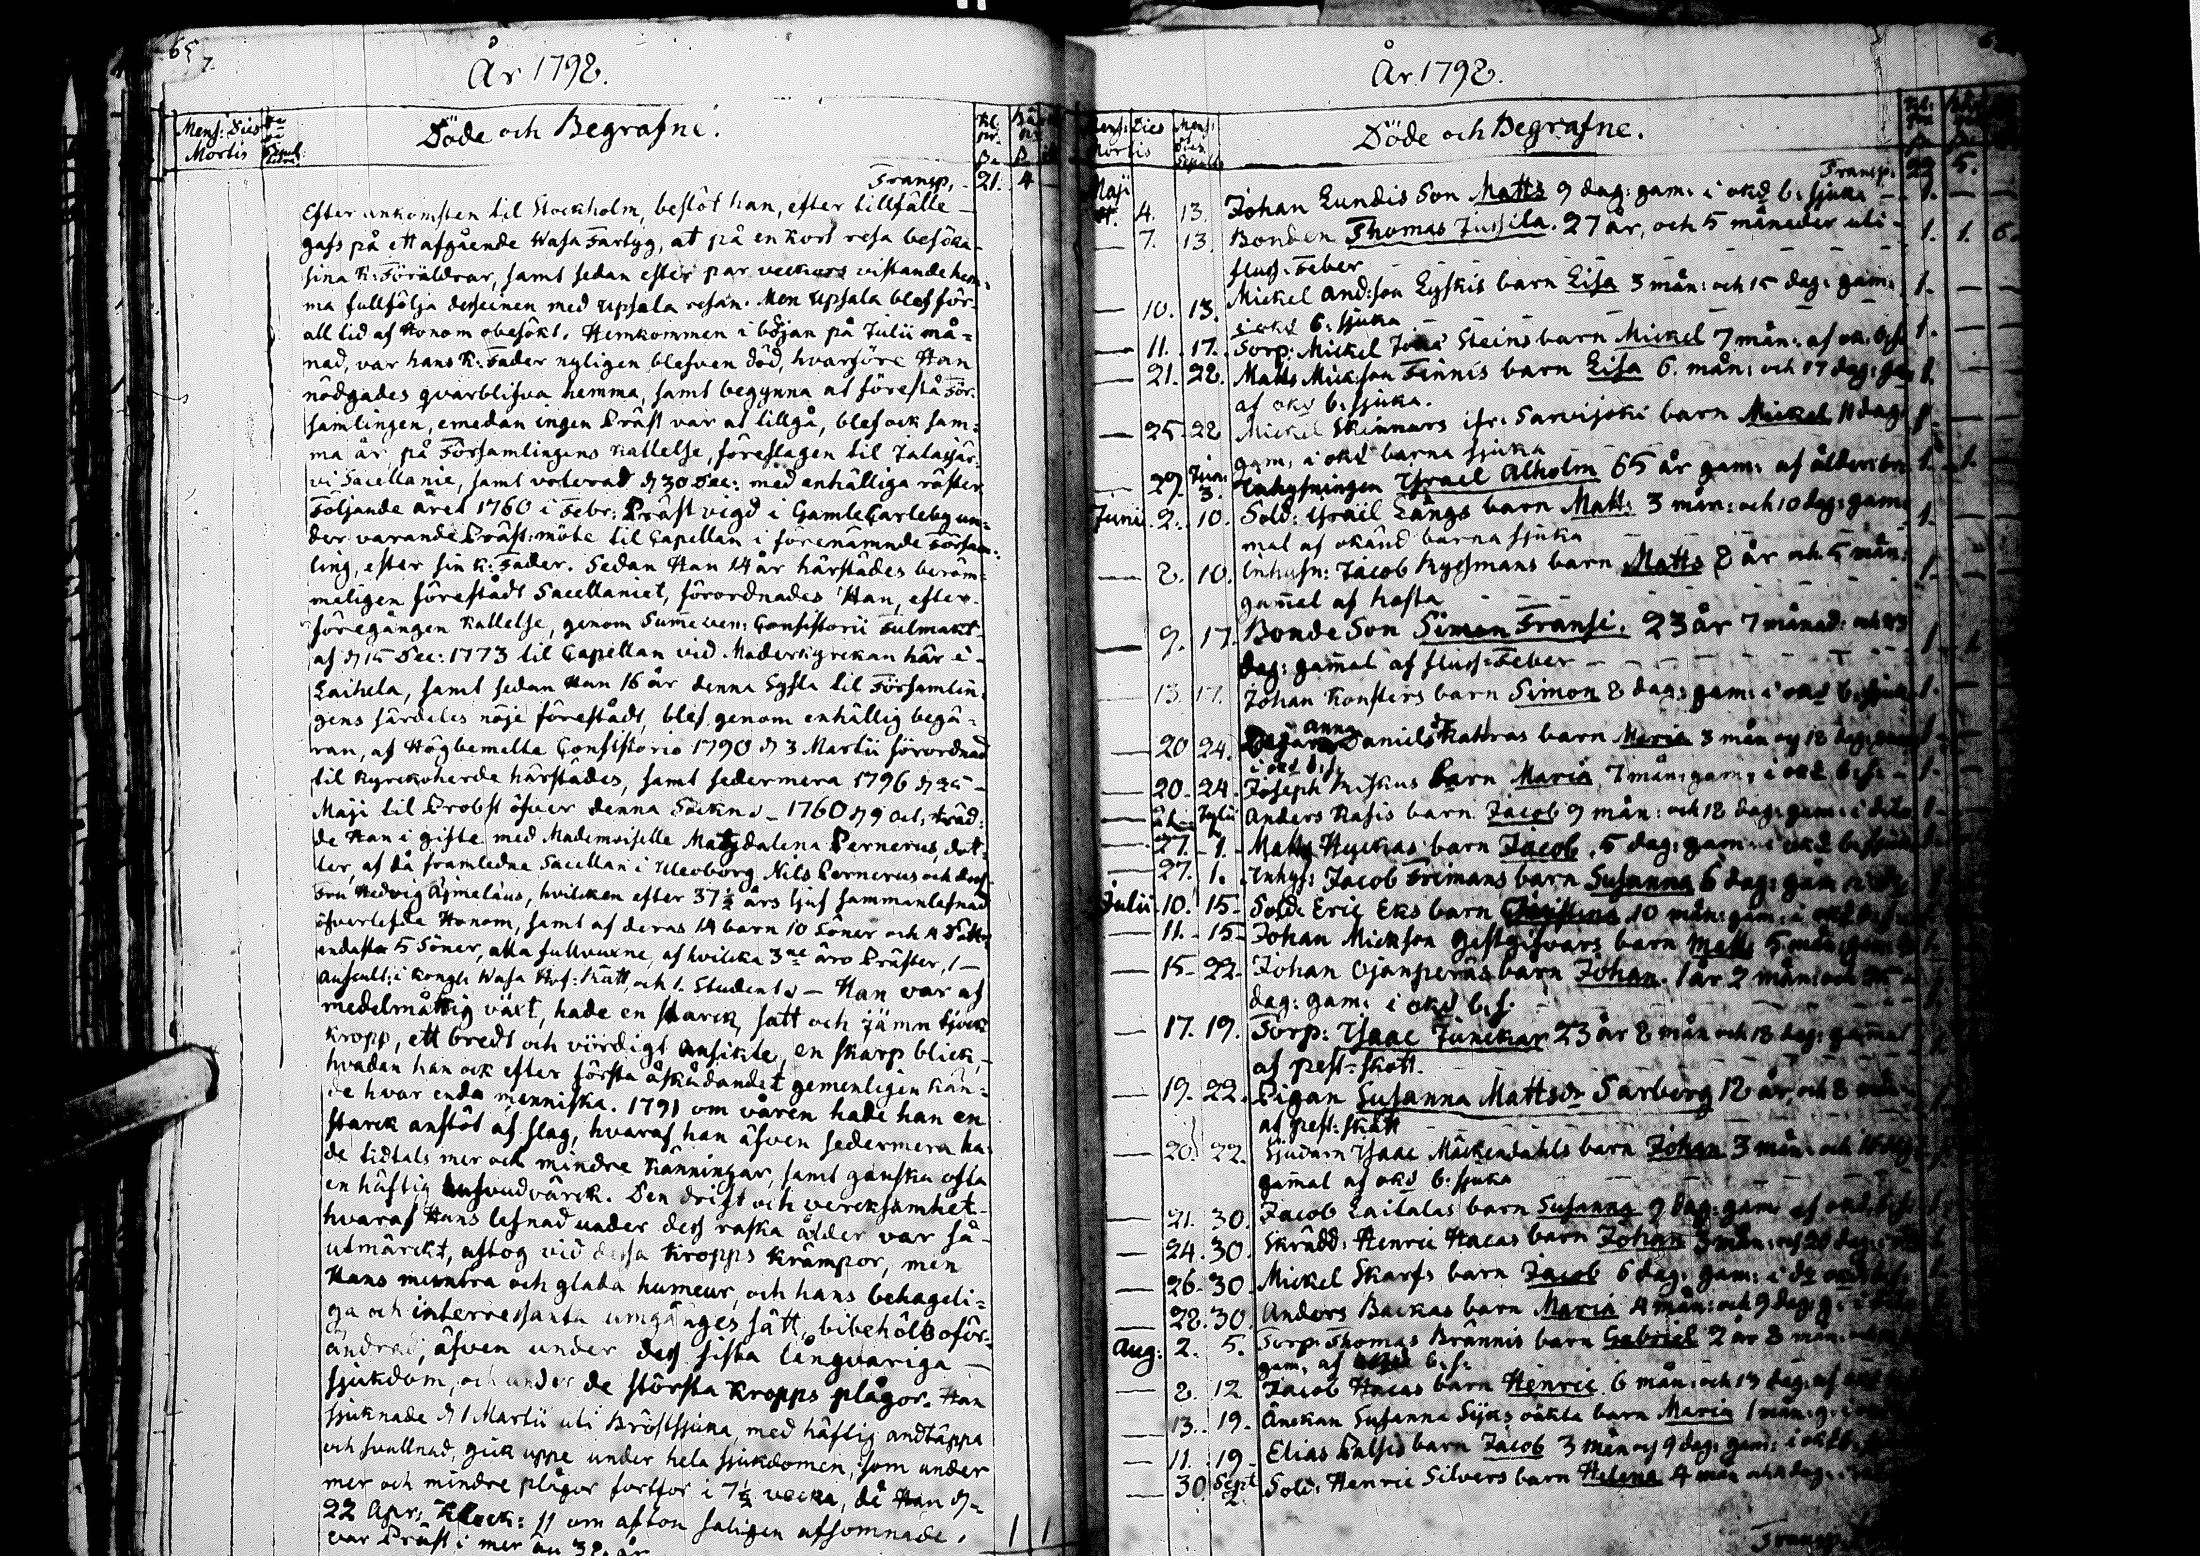 65
År 1798.
Mens: Dies Mortis
Döde och Begrafne.
Transp. 21. 4
Efter ankomsten til Stockholm, beslöt han, efter tillfälle
gafs på ett afgående Wasa Fartyg, at på en kort resa besöka
sina K: Föräldrar, samt sedan efter par veckors vistande hem-
ma fullfölja desseinen med Upsala resan. Men Upsala blef för
all tid af Honom obesökt. Hemkommen i början på Julii må=
nad, var hans K: Fader nyligen blefven död, hvarföre Han
nödgades qvarblifva hemma, samt begynna at förestå För-
samlingen, emedan ingen Präst var at tillgå, blef ock sam=
ma år på Församlingens kallelse, föreslagen til Jalasjär-
vi Sacellanie, samt voterad d 30 Dec: med enhälliga röster
Följande året 1760 i Febr: Präst vigd i Gamle Carleby un=
der varande Präst:möte til Capellan i förenämnde Försam=
ling, efter sin K: Fader. Sedan Han 14 år härstädes beröm=
meligen förestådt Sacellaniet, förordnades Han, efter
föregången kallelse, genom Consistorii Fulmakt
af d 15 Dec: 1773 til Capellan vid Moderkyrckan här i
Laihela, samt sedan Han 16 år denna Sysla til Församlin-
gens särdeles nöje förestådt, blef genom enhällig begä=
ran, af Högbemelta Consistorio 1790 d 3 Martii förordnad
til Kyrckoherde härstädes, samt sedermera 1796 d 25
Maji til Probst öfver denna Sockn. 1760 d 9 Oct: träd=
de Han i gifte med Mademoiselle Magdalena Pernerus, dot=
ter, af då framledne Sacellan i Uleoborg Nils Pernerus och dess
Fru Hedvig Äjmelæus, hvilcken efter 37 1/2 års ljuf sammanlefnad
öfverlefde Honom, samt af deras 14 barn 10 Söner och 4 Döttr
endast 5 Söner, alla fullvuxne, af hvilcka 3ne äro Präster, 1
Auscult: i Kongl. Wasa Hof:Rätt, och 1. Student. Han var af
medelmåttig växt, hade en starck, satt och jämn tjock
kropp, ett bredt och vördigt ansikte, en skarp blick,
hvadan han ock efter första åskådandet gemenligen kän=
de hvar enda menniska. 1791 om våren hade han en
starck anstöt af slag, hvaraf han äfven sedermera ha-
de tidtals mer och mindre känningar, samt ganska ofta
en häftig hufvudvärck. Den drift och vercksamhet
hvaraf Hans lefnad under dess raska ålder var så
utmärckt, aftog vid dessa kropps krämpor, men
Hans muntra och glada humeur, och hans behageli=
ga och interressanta umgänges sätt, bibehölt oför-
ändrad, äfven under dess sista långvariga
sjukdom, och under de största kropps plågor. Han
sjuknade d 1 Martii uti Bröstsjuka, med häftig andtäppa
och svullnad, gick uppe under hela sjukdomen, som under
mer och mindre plågor fortfor i 7 1/2 vecka, då Han d
22 Apr: Klock: 11 om afton saligen afsomnade. 1 1
var Präst i mer än 38 år
År 1798.
Mens: Dies Mortis
Döde och Begrafne.
Transp. 22 5.
Maji 4. 13. Johan Lundis Son Matts 9 dag: gam: i okd b: sjuka 1.
7. 13. Bonden Thomas Jussila. 27 år, och 5 månader uti 1. 1. 6.
fluss:Feber
10. 13. Mickel And:son Lyskis barn Lisa 3 mån: och 15 dag: gam: 1.
i okd b: sjuka
11. 17. Torp: Mickel Steins barn Mickel 7 mån: af ok. 1.
21. 22. Matts Mickson Finnis barn Lisa 6. mån: och 17 dag: 1.
af okd b: sjuka.
25. 28 Mickel Skinnars ifr: Sarvijoki barn Mickel 11 dag:
gam: i okd barna sjuka
29. Jun: 3. Inhysningen Israel Alholm 65 år gam: af ålder 1. 1.
Junii 2. 10. Sold: Israel Långs barn Matts 3 mån: och 10 dag: gam 1.
mal af okänd barna sjuka
8. 10. Inhysn: Jacob Ryssmans barn Matts 2 år och 5 mån: 1.
gamal af hosta
9. 17. Bonde Son Simon Fransi. 23 år 7 månad: och 23 1. 1
dag: gamal af fluss:Feber
13. 17. Johan Konsters barn Simon 8 dag: gam: i okd b:sjuk 1.
20 24. Anna Danielsdr Kattras barn Maria 3 mån och 18 dag: 1
i okd b:s.
20. 24. Joseph barn Maria 7 mån: gam: i okd b:s. 1.
Julii 1. Anders Rasis barn Jacob 9 mån: och 18 dag: gam: i 1
27. 1. Matts Hyckas barn Jacob, 5 dag: gam: i okd b:sjuk 1.
27. 1. Inhys: Jacob Frimans barn Susanna 6 dag: gam
Julii 10. 15. Sold: Eric Eks barn Christina 10 mån: gam: i okd
11. 15. Johan Mickson Gestgifvars barn Matts 5 mån: gam: 1.
15. 22. Johan Ojanperäs barn Johan. 1 år 2 mån: och 25
dag: gam: i okd b:s.
17. 19. Torp: Isaac Junckar 23 år 8 mån och 18 dag: gamal
af pest:skott.
19. 22. Pigan Susanna Mattsdr Sarborg 18 år, och 8 mån
af pest:skott
20. 22. Isaac barn Johan 3 mån: och
gamal af okd b: sjuka
21. 30. Jacob Laitalas barn Susanna 9 dag: gam: af okd 1.
24. 30. Skrädd: Henric Hacas barn Johan 3 mån: och 20 dag:
26. 30. Mickel Skarfs barn Jacob 6 dag: gam: i
28. 30. Anders Backas barn Maria 4 mån: och 9 dag:
Aug: 2. 5. Torp: Thomas Brännis barn Gabriel 2 år 8 mån:
gam: af b:s.
8. 12 Jacob Hacas barn Henric 6 mån: och 13 dag: af
13. 19. Änckan Susanna Sijks oäkta barn Maria 1 mån: g:
11. 19. Elias barn Jacob 3 mån och 9 dag: gam: i
30. Sept 2. Sold: Henric Silvers barn Helena 4 mån
Transp.